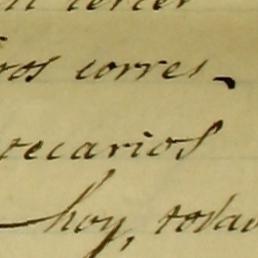 un tercer
ros corres
tecarios
hoy, todav